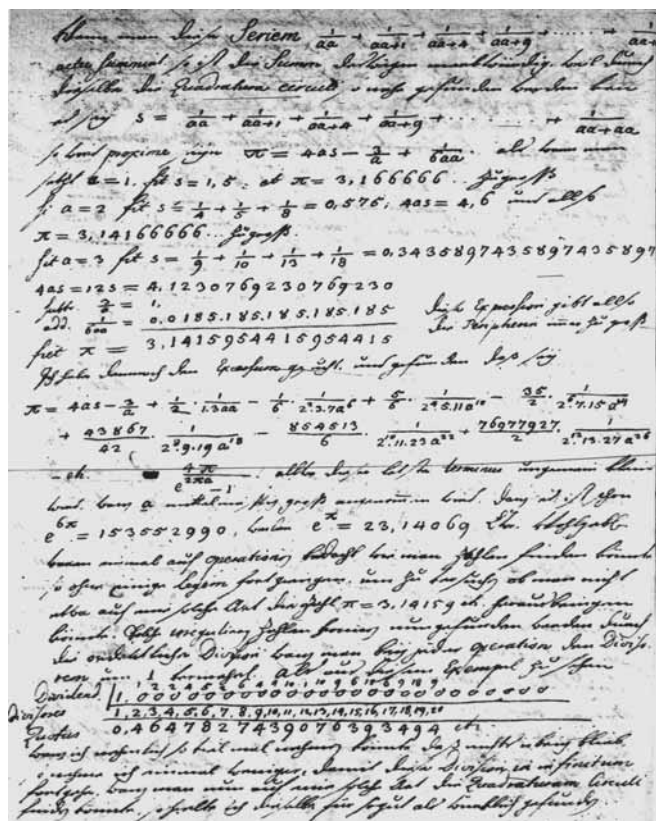 Wann man diese Seriem 1/aa + 1/(aa+1) + 1/(aa+4) + 1/(aa+9) + ...... +
so ist die Summe merkwürdig, weil durch
dieselbe die Quadratura circuli gefunden werden kan
s = 1/aa + 1/(aa+1) + 1/(aa+4) + 1/(aa+9) + ........ + 1/(aa+aa)
so wird proxime π = 4as − 3/a + 1/6aa. als wann man
setzt a = 1. fit s = 1,5; et π = 3,166666... zu groß
a = 2 fit s = 1/4 + 1/5 + 1/8 = 0,575; 4as = 4,6 und also
π = 3,14166666... zu groß.
Sit a = 3 fit s = 1/9 + 1/10 + 1/13 + 1/18 = 0.3435897435897435897
4as = 12s = 4.1230769230769230
subtr. 3/a = 1.
add. 1/6aa = 0.0185.185.185.185.185 diese Expression gibt also
fiet π = 3.1415954415954415 die Peripherie immer zu groß
Ich habe dennoch den Excessum gesucht, und gefunden daß
π = 4as − 3/a + 1/2 · 1/1.3aa − 1/6 · 1/2⁴.3.7a⁶ + 5/6 · 1/2⁶.5.11a¹⁰ − 35/2 · 1/2⁸.7.15a¹⁴
+ 43867/42 · 1/2¹⁰.9.19a¹⁸ − 854513/6 · 1/2¹².11.23a²² + 76977927/2 · 1/2¹⁴.13.27a²⁶
− etc. 4π/(e^2πa − 1) · allwo dieser letzte terminus ungemein klein
wird, wann a mittelmäßig groß angenommen wird. dann es ist schon
e^6π = 153552990, weilen e^π = 23,14069
einmal auf operationen bedacht wie man Zahlen finden könnte
so ohne einige legem fortgingen, um zu versuchen ob man nicht
etwa auf eine solche Art die Zahl π = 3,14159 etc. herausbringen
könnte. Solche irregulaire Zahlen können gefunden werden durch
die ordentliche Division wann man bey jeder operation den Diviso-
rem um 1 vermehret. Als aus diesem Exempel zu sehen
Dividend 1.0000000000000000000
Divisores 1,2,3,4,5,6,7,8,9,10,11,12,13,14,15,16,17,18,19,20
Quotus 0.4647827439076393494 etc.
wann ich so viel mal nehmen könnte daß nichts übrig blieb,
so nehme ich einmal weniger, damit diese Division in infinitum
fortgehe. wann man nun auf eine solche Art die Quadraturam Circuli
finden könnte, so hielte ich dieselbe für so gut als würklich gefunden.